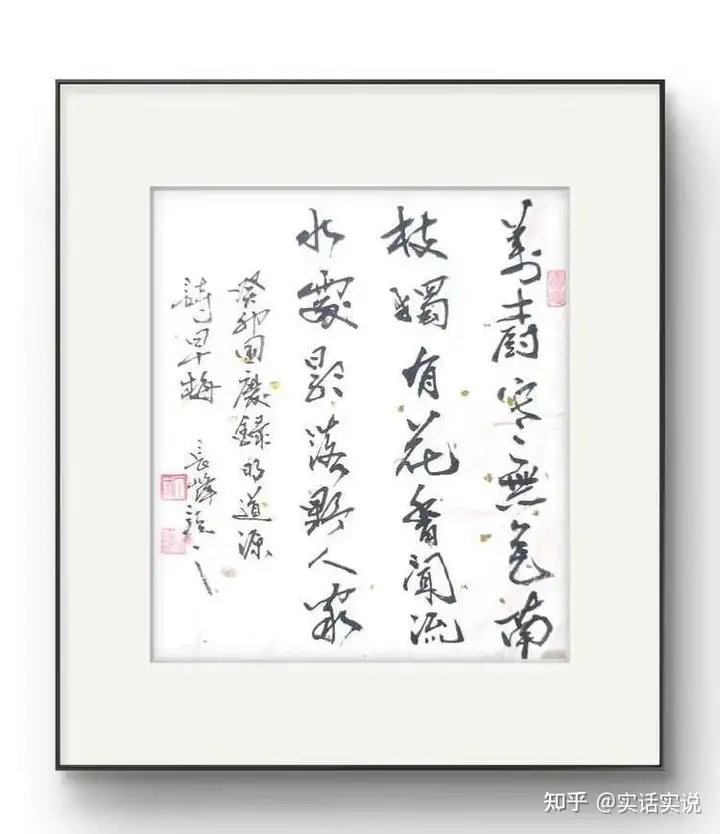 萬樹寒無色南
枝獨有花香聞流
水處影落野人家
癸卯国慶録明道源
詩早梅 長峰
知乎 @实话实说